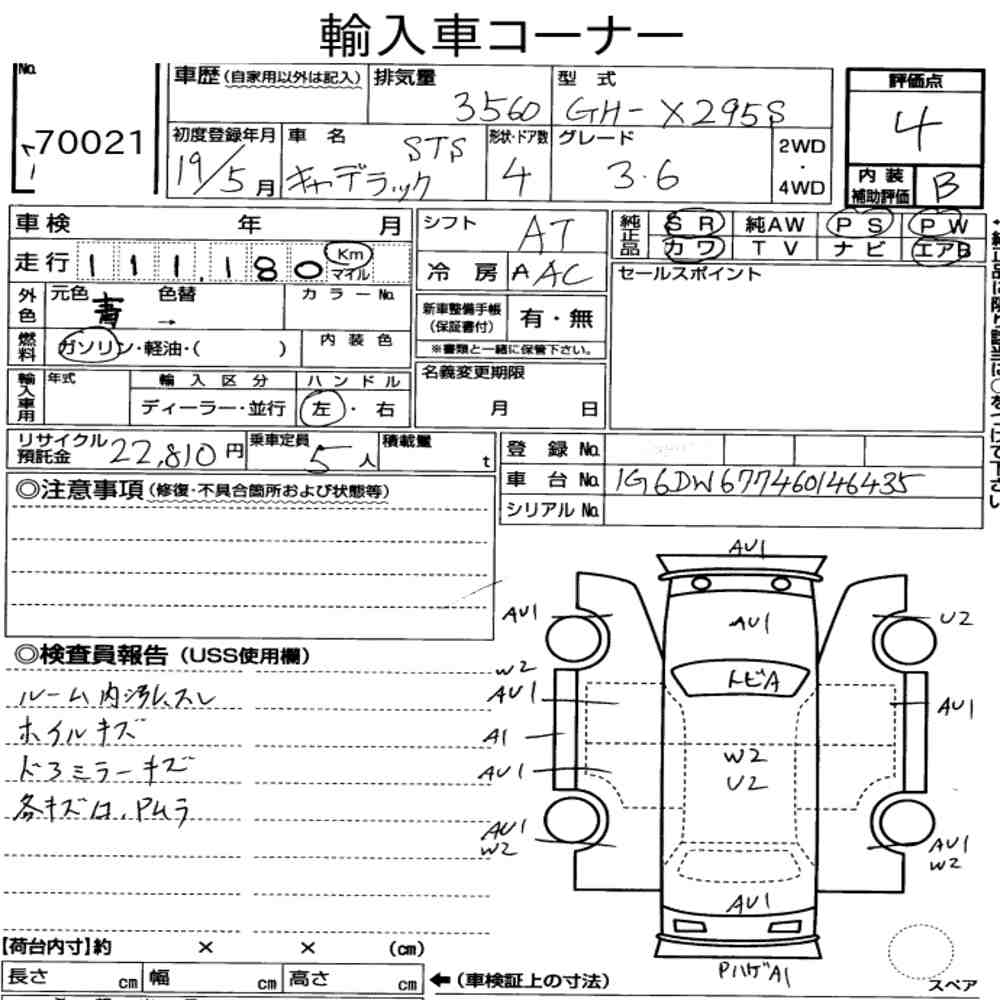 輸入車コーナー
No.
70021
車歴(自家用以外は記入)
排気量
3560
型 式
GH-X295S
評価点
4
初度登録年月
19/5月
車 名
STS
キャデラック
形状・ドア数
4
グレード
3.6
2WD
・
4WD
内 装
補助評価
B
車検 年 月
シフト
AT
純正品
SR 純AW PS PW
カワ TV ナビ エアB
走行
111,180
Km
マイル
冷 房
A AC
セールスポイント
外色
元色
青
色替
→
カラーNo.
新車整備手帳
(保証書付)
有・無
※書類と一緒に保管下さい。
燃料
ガソリン・軽油・( )
内装色
名義変更期限
月 日
輸入車用
年式
輸入区分
ディーラー・並行
ハンドル
左・右
リサイクル
預託金
22,810円
乗車定員
5人
積載量
t
登 録 No.
車 台 No.
1G6DW677460146435
シリアル No.
◎注意事項(修復・不具合箇所および状態等)
◎検査員報告(USS使用欄)
ルーム内汚レスレ
ホイルキズ
ドアミラーキズ
各キズ有、Pムラ
AU1
AU1
U2
AU1
トビA
W2
AU1
AU1
A1
W2
U2
AU1
AU1
W2
AU1
W2
AU1
PハゲA1
スペア
【荷台内寸】約 × × (cm)
長さ cm 幅 cm 高さ cm
←(車検証上の寸法)